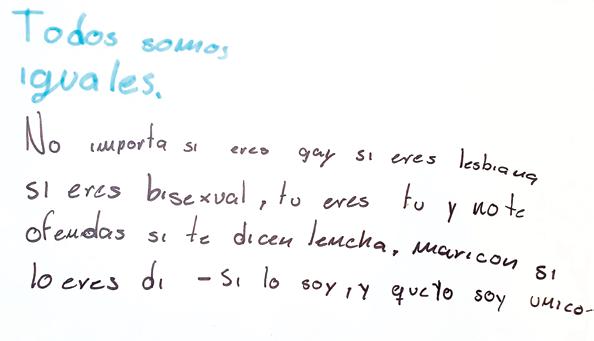 Todos somos
iguales.
No importa si eres gay si eres lesbiana
si eres bisexual, tu eres tu y no te
ofendas si te dicen lencha, maricon si
lo eres di - Si lo soy, y que yo soy unico-